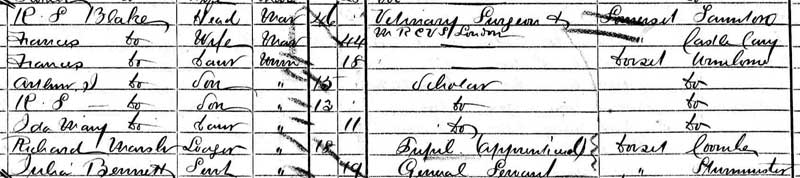 R. S. Blake Head Mar 46 Vetinary Surgeon & Somerset Taunton
M R C V S London
Frances do Wife Mar 44 " Castle Cary
Frances do Daur Unm 18 Dorset Wimborne
Arthur J do Son " 15 Scholar do do
R S do Son " 13 do do do
Ida Mary do Daur " 11 do do do
Richard Marsh Lodger " 18 Pupil (apprenticed) Dorset Coombe
Julia Bennett Servt " 19 General Servant " Sturminster